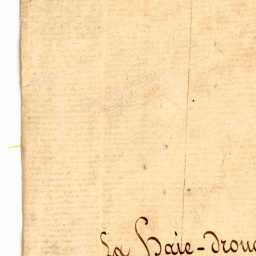 La Haie-drou